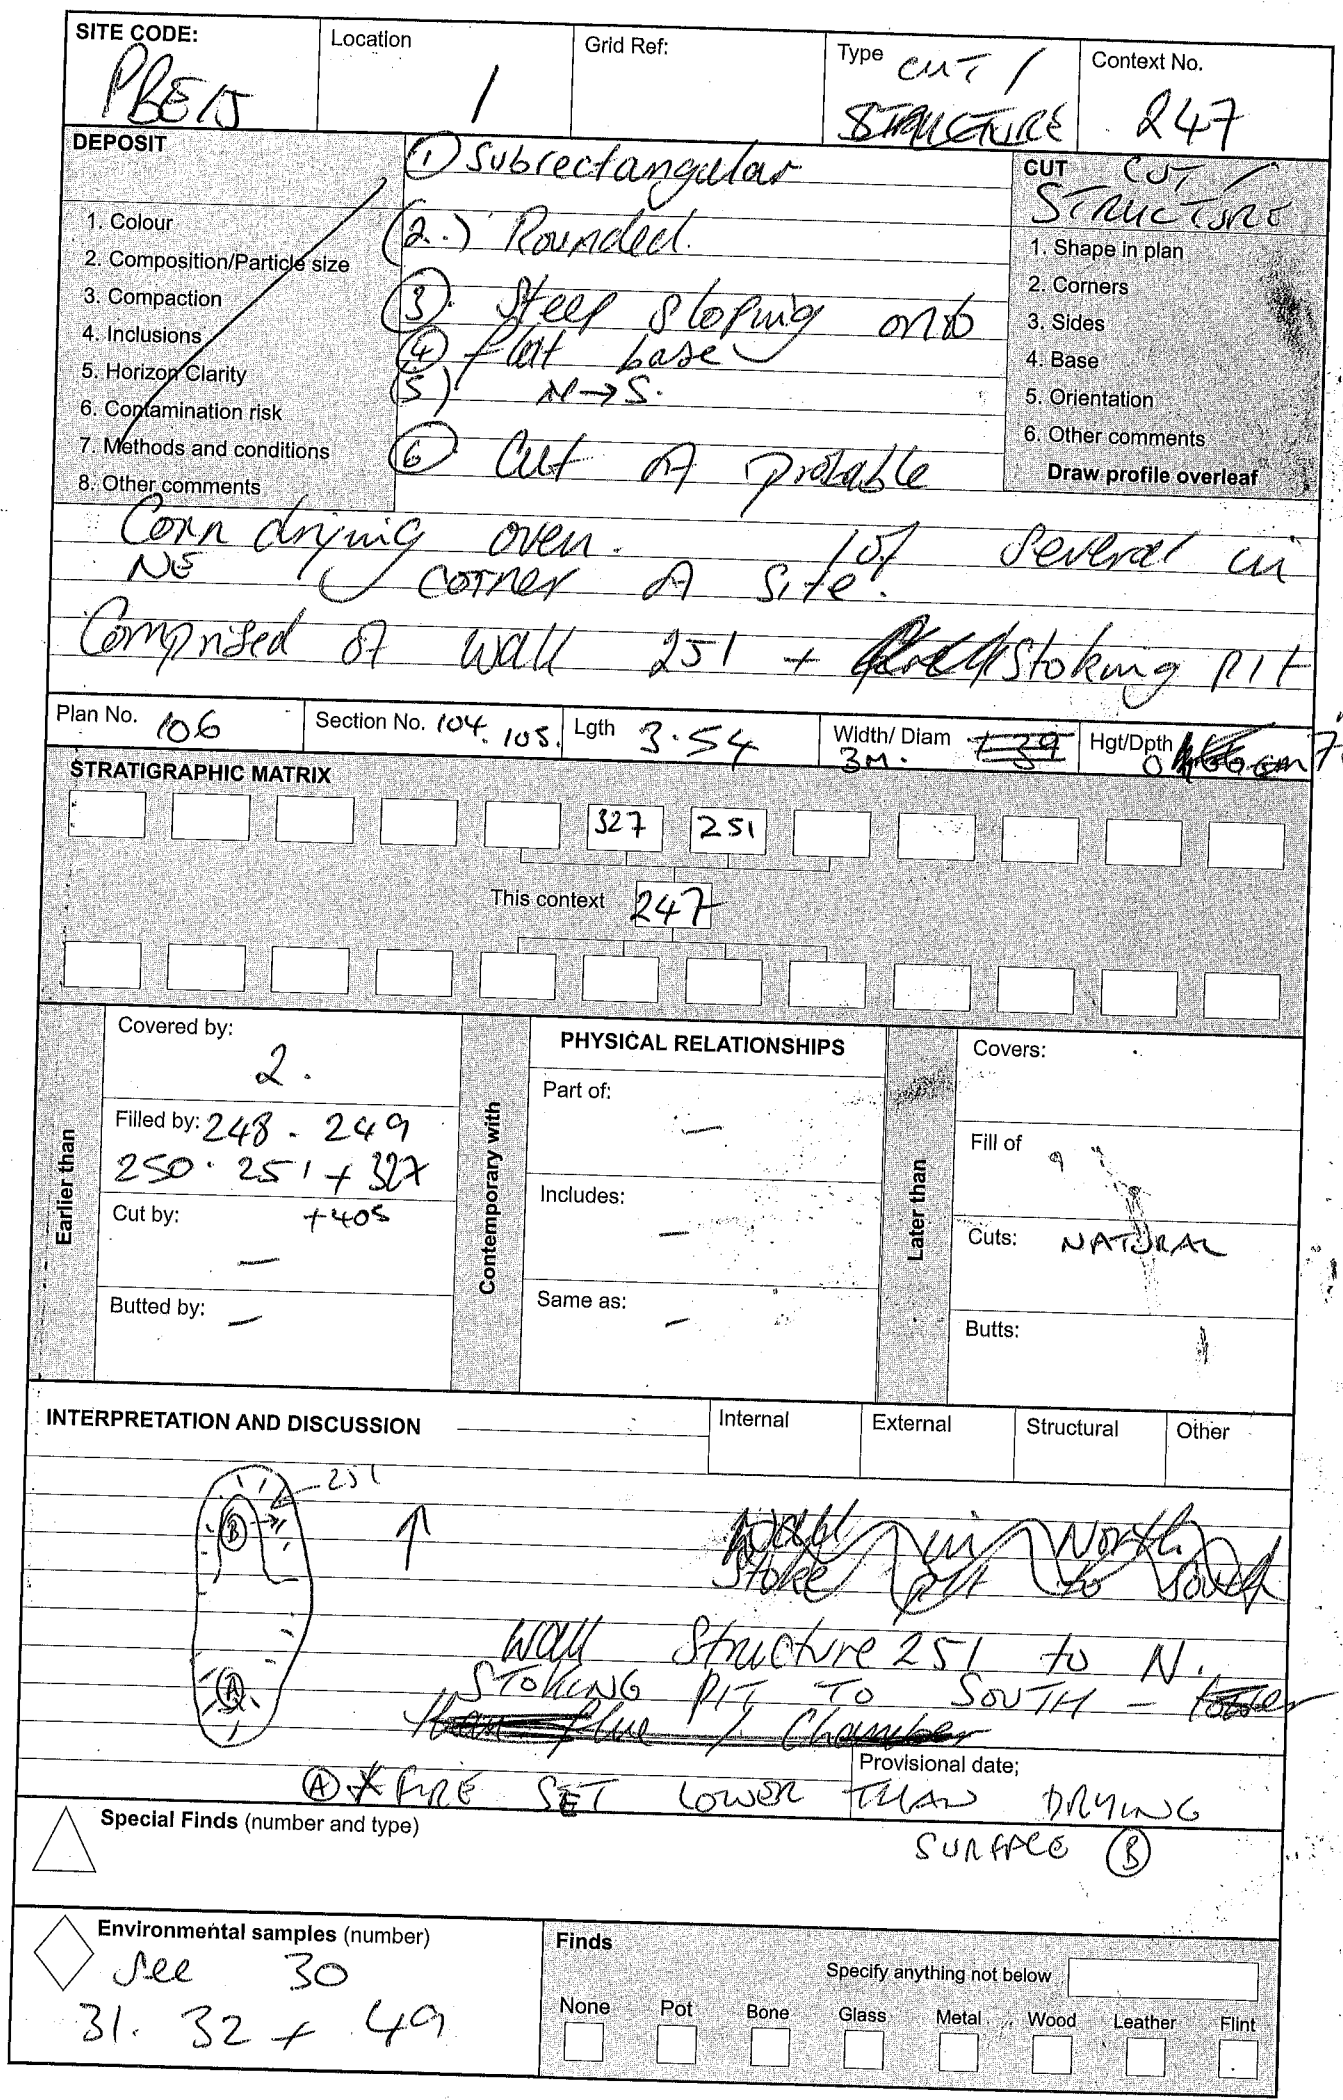 SITE CODE: Location Grid Ref: Type CUT / Context No.
PBE15 1 STRUCTURE 247
DEPOSIT
1. Colour
2. Composition/Particle size
3. Compaction
4. Inclusions
5. Horizon Clarity
6. Contamination risk
7. Methods and conditions
8. Other comments
① Subrectangular
(2.) Rounded.
③. Steep sloping onto
④ flat base
(5) N→S.
⑥ Cut of probable
CUT CUT /
STRUCTURE
1. Shape in plan
2. Corners
3. Sides
4. Base
5. Orientation
6. Other comments
Draw profile overleaf
Corn drying oven. 1 of several in
NE corner of site.
Comprised of wall 251 + stoking pit
Plan No. 106 Section No. 104. 105. Lgth 3.54 Width/ Diam 3M. Hgt/Dpth
STRATIGRAPHIC MATRIX
327 251
This context 247
Earlier than
Covered by:
2.
Filled by: 248 . 249
250 . 251 + 327
+405
Cut by:
—
Butted by: —
Contemporary with
PHYSICAL RELATIONSHIPS
Part of:
—
Includes:
—
Same as:
—
Later than
Covers:
Fill of
Cuts: NATURAL
Butts:
INTERPRETATION AND DISCUSSION Internal External Structural Other
251
B
↑
Wall in North
Stoke pit to South
Wall Structure 251 to N.
A
STOKING PIT TO SOUTH –
flue / Chamber
Provisional date;
Ⓐ FIRE SET LOWER THAN DRYING
SURFACE Ⓑ
Special Finds (number and type)
Environmental samples (number)
See 30
31. 32 + 49
Finds
Specify anything not below
None Pot Bone Glass Metal Wood Leather Flint